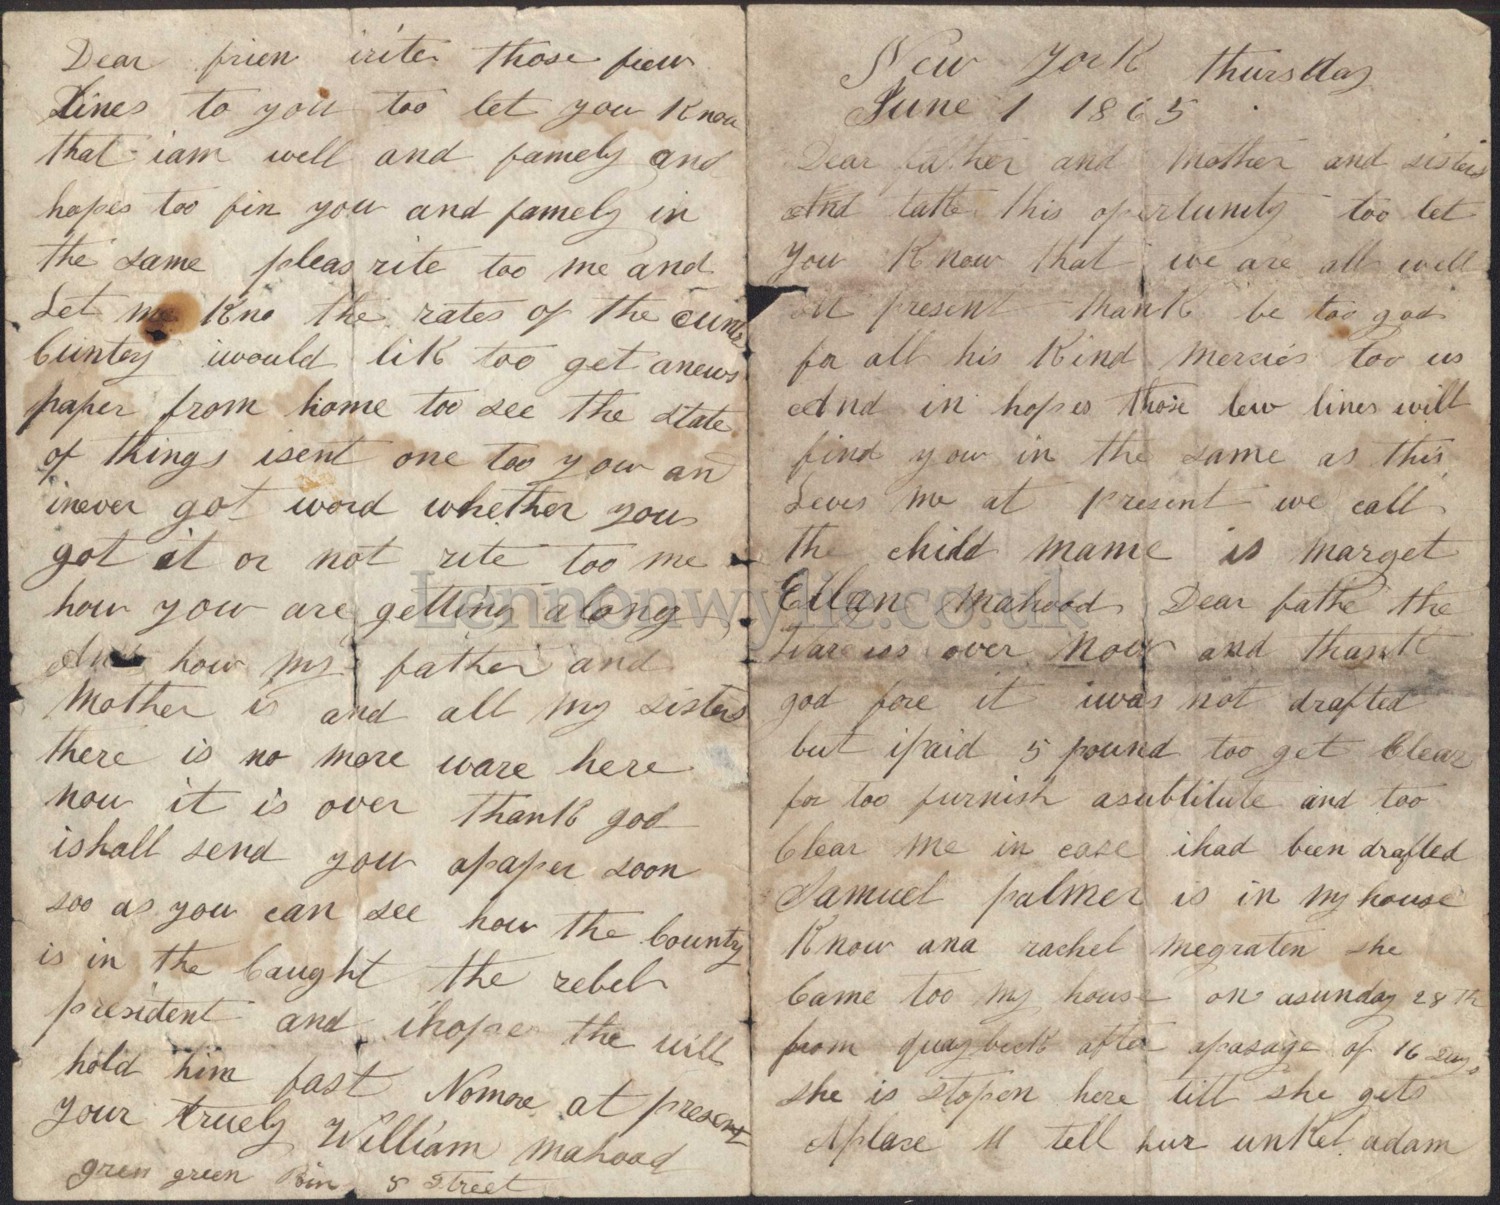 Dear frien irite those few
Lines to you too let you Know
that iam well and famely and
hopes too fin you and famely in
the same pleas rite too me and
Let me Kno the rates of the cunte
Cuntey iwould lik too get anews
paper from home too see the state
of things isent one too you an
inever got word whether you
got it or not rite too me
how you are getting along
And how my father and
Mother is and all my sisters
there is no more ware here
now it is over thank god
ishall send you apaper soon
soo as you can see how the County
is in the Caught the rebel
president and ihope the will
hold him fast Nomore at present
your truely William Mahood
gren green Bin 8 Street
New York thursday
June 1 1865
Dear father and Mother and sisters
And take this opertunity too let
you Know that we are all well
at present thank be too god
for all his Kind Mersies too us
And in hopes those few lines will
find you in the same as this
Leves me at present we call
the child name is marget
Ellan Mahood Dear fathe the
ware iss over Now and thank
god fore it iwas not drafted
but ipaid 5 pound too get Clear
for too furnish asubtitute and too
Clear me in case ihad been drafted
Samuel palmer is in my house
Know and rachel Megraten she
Came too my house on asunday 28 th
from quaybeck after apasage of 16 Days
she is stopen here till she gets
Aplase tell hur unkel adam
Lennonwylie.co.uk